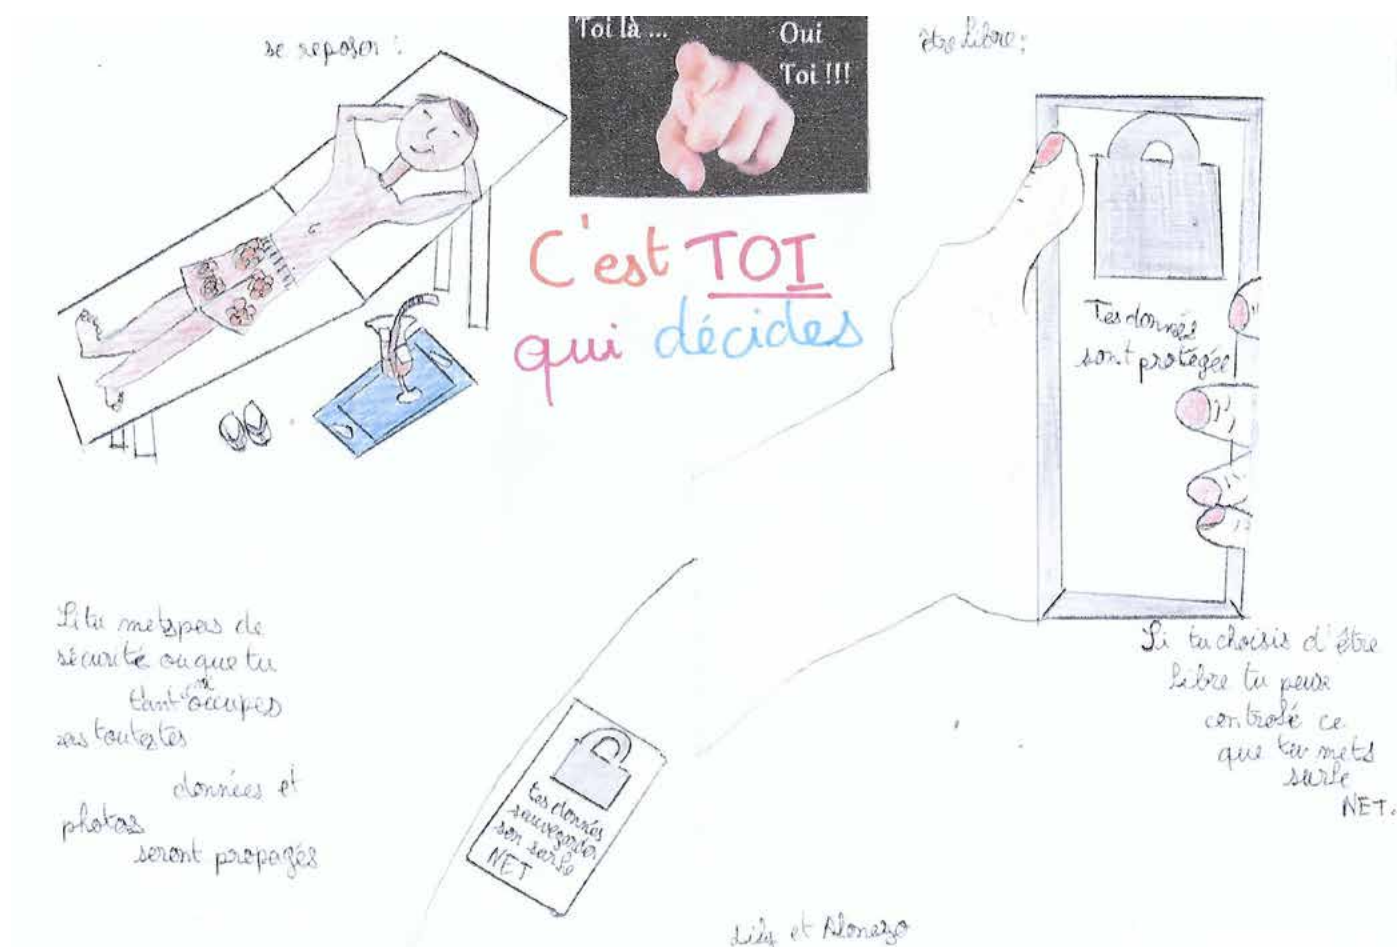 se reposer :
Toi là ...
Oui
Toi !!!
être libre :
C'est TOI
qui décides
Tes donnés
sont protégée
Si tu mets pas de
sécurité ou que tu
t'en occupes
toutes tes
données et
photos
seront propagés
tes donnés
sauvegarder
son sur le
NET
Si tu choisis d'être
libre tu peux
controlé ce
que tu mets
sur le
NET.
Lily et Alonezo